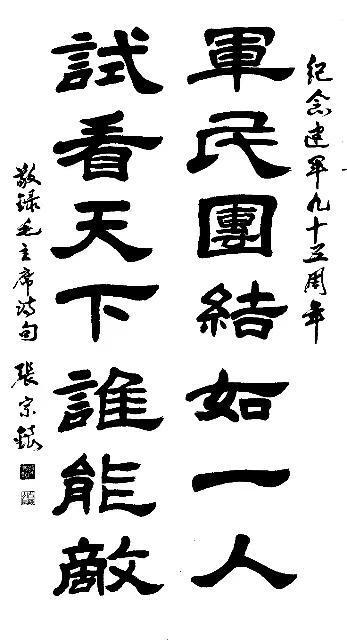 紀念建軍九十五周年
軍民團結如一人
試看天下誰能敵
敬録毛主席诗句
張宗銀